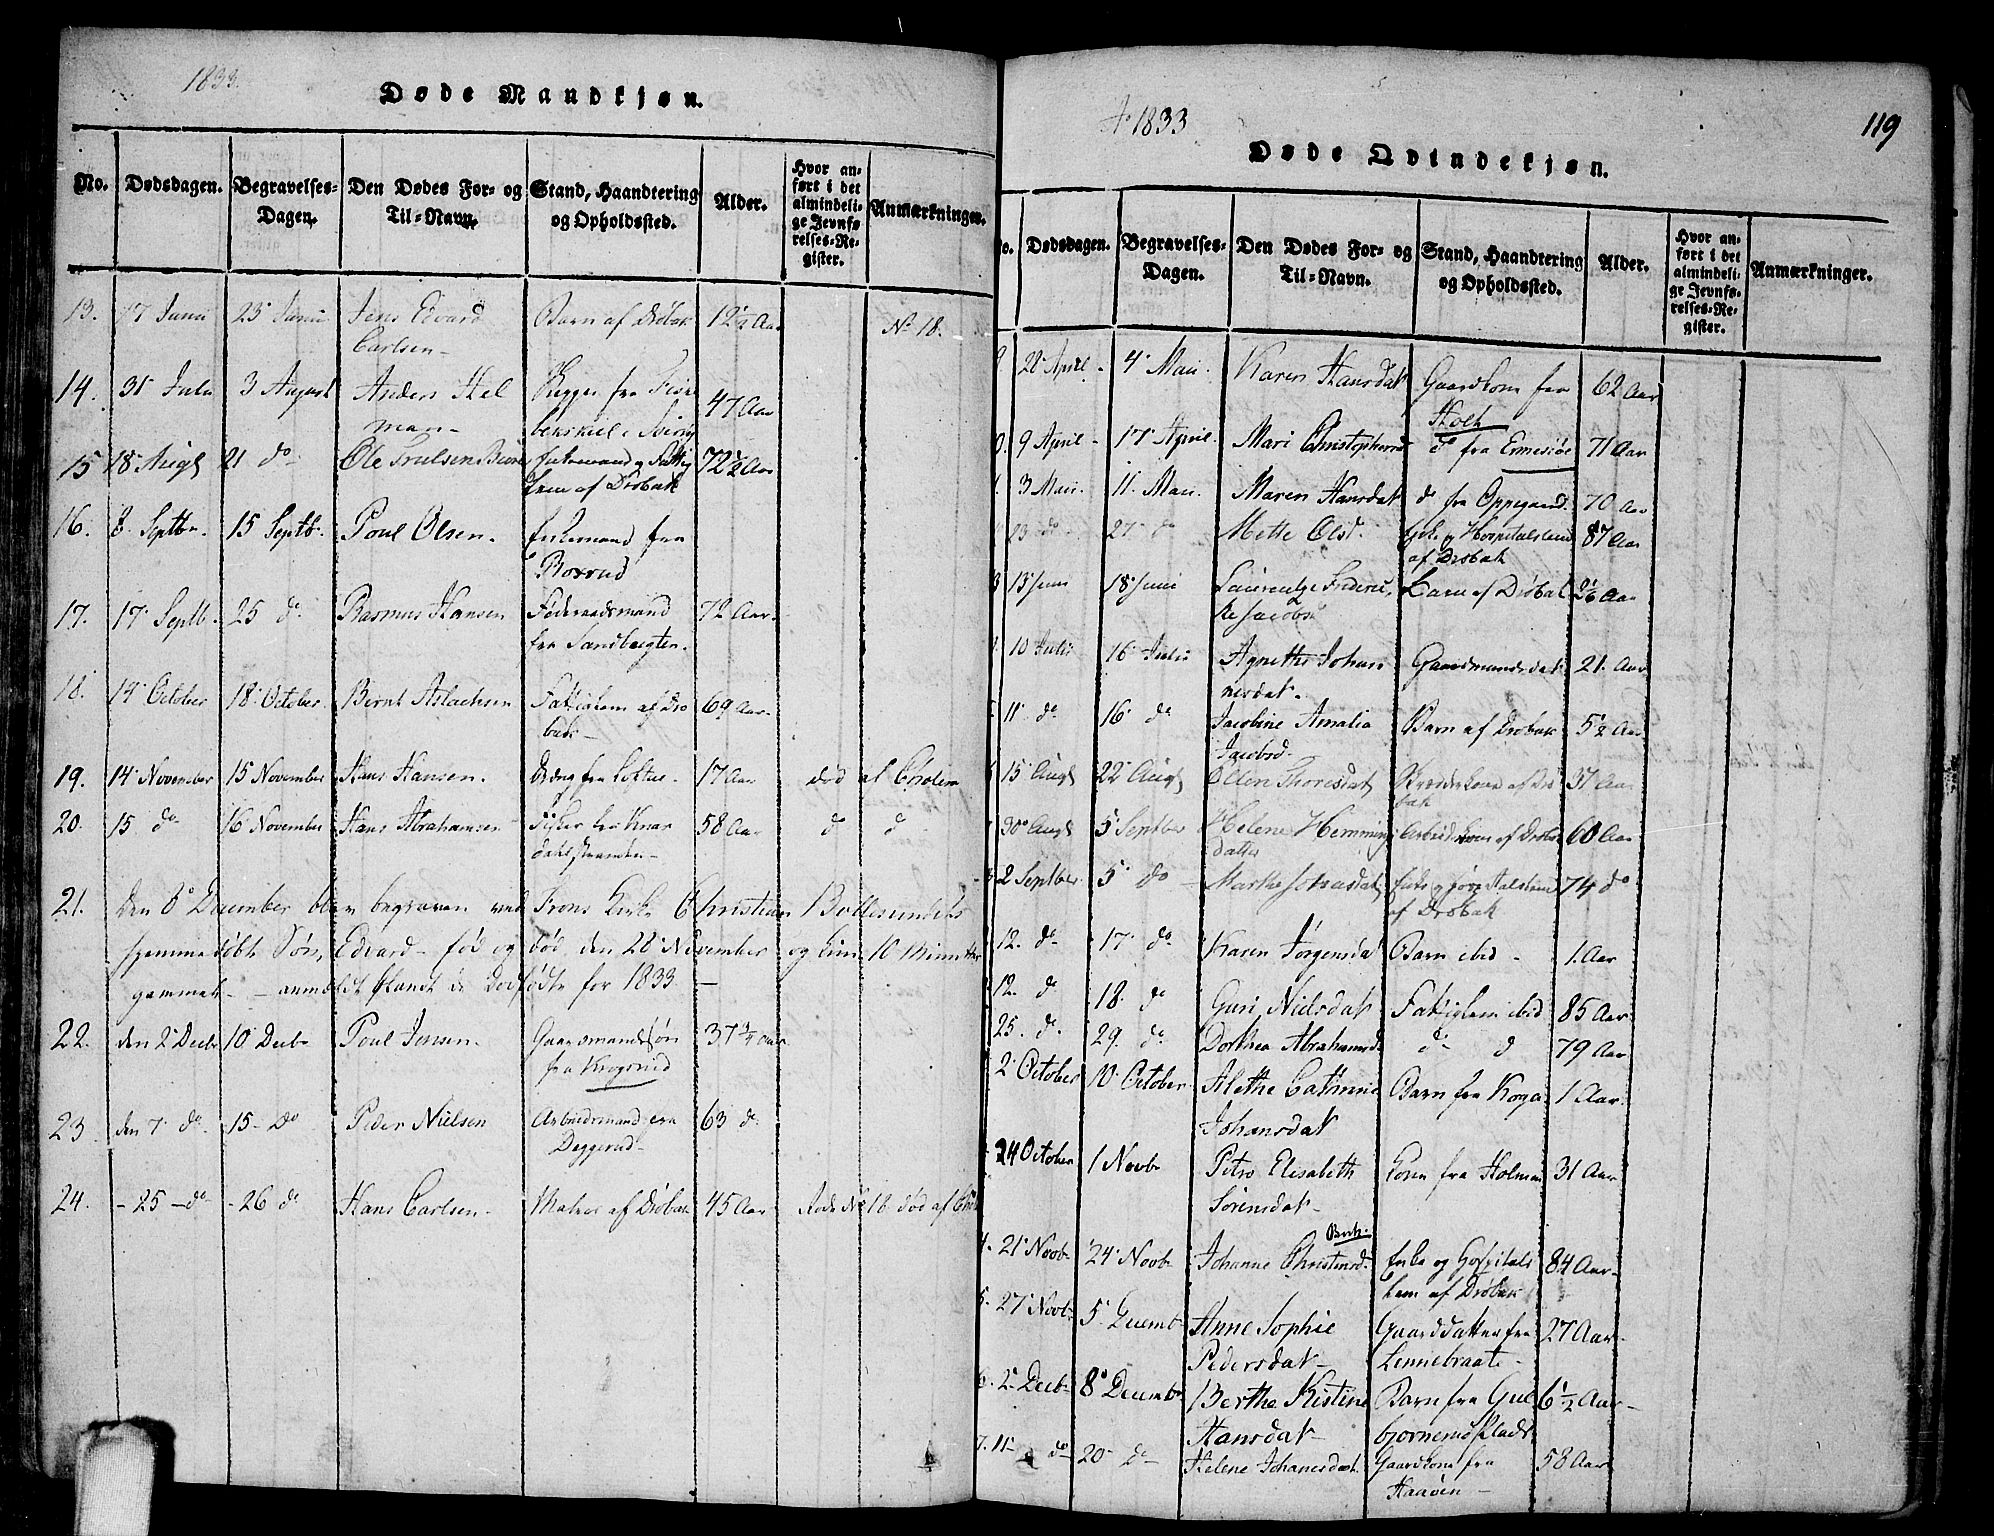 1833.
Døde Mandkjøn.
No. Dødsdagen. Begravelses-Dagen. Den Dødes For- og Til-Navn. Stand, Haandtering og Opholdssted. Alder. Hvor anført i det almindelige Jevnførelses-Register. Anmærkninger.
13. 17 Juni 23 Junii Jens Edvard Barn af Drøbak 12 1/2 Aar No 18.
Carlsen
14. 31 Juli 3 August Anders Hel fra 47 Aar
man
15 18 Augt 21 do Ole Trulsen Enkemand og Fattig 72 1/2 Aar
lem af Drøbak
16. 8. Septbr. 15 Septbr. Poul Olsen. Enkemand fra
Roxrud
17. 17 Septb. 25 do. Rasmus Hansen Føderaadsmand 72 Aar.
fra Sandbugten.
18. 14 October 18 October. Bernt Aslachsen Fattiglem af Drø 69 Aar.
bak
19. 14 November 15 November Hans Hansen. Dreng fra 17 Aar død af Cholera
20. 15 do 16 November Hans Abrahamsen Fisker fra Knar 58 Aar do do
dahlstranden
21. den 8 December blev begraven ved Frons Kirke Christian
hjemmedøbte Søn, Edvard - fød og død den 28 November og kun 10 Minutter
gammel. - anmeldt blandt de Dødfødte for 1833 -
22. den 2 Decbr 10 Decbr Poul Jensen. Gaardmandssøn 37 3/4 Aar
fra Krogsrud
23. den 7. do. 15 - Do Peder Nielsen Arbeidsmand fra 63 do
Deggerud
24. - 25 - do - 26 do Hans Carlsen Matros af Drøbak 45 Aar No 18 død af
Ao 1833
119
Døde Qvindekjøn.
No. Dødsdagen. Begravelses-Dagen. Den Dødes For- og Til-Navn. Stand, Haandtering og Opholdssted. Alder. Hvor anført i det almindelige Jevnførelses-Register. Anmærkninger.
28 April. 4 Maii. Karen Hansdat Gaardkone fra 62 Aar
Holt
9 April 17 April. Mari Christophersd do fra Ermesiøe 71 Aar
3 Maii. 11. Maii Maren Hansdat do fra Oppegaard. 70 Aar
23 do 27 do Mette Olsd. Enke og Hospitalslem 87 Aar
af Drøbak
13 Juni 18 Juni Laurentze Frideric Barn af Drøbak Aar
ke Jacobsd
10 Julii 16 Julii Agnethe Johan Gaardmandsdat 21. Aar
nesdat.
11 do 16 do Jacobine Amalia Barn af Drøbak 5 1/2 Aar
Jacobsd
15 Augt 22 Augt Ellen Thoresdat af Drø 37 Aar
bak
30 Augt 5 Septber Helene Hemmings Arbeidskone af Drøbak 60 Aar
datter
2 Septber. 5 do Marthe Enke og Hospitalslem 74 do
af Drøbak
12. do 17 do Karen Jørgensda Barn ibid - 1. Aar
12. do 18. do Guri Nielsdat Fattiglem ibid 85 Aar
25. do. 29. do Dorthea Abrahamsd. do do 79 Aar
2 October 10 October. Alethe Cathrine Barn fra 1 Aar.
Johansdat
24 October 1 Novbr Petro Elisabeth Kone fra Holmen 31 Aar
Sørensdat
4. 21 Novbr 24 Novbr Johanne Christensd. Enke og Hospitals 84 Aar
lem af Drøbak
5. 27 Novbr 5 Decemb Anne Sophie Gaarddatter fra 27 Aar
Pedersdat Lennebraate
6. 2 Decbr 8 Decemb Berthe Kistine Barn fra Gul 6 1/2 Aar
Hansdat bjørnerud Plads
7. 11 do 20 do Helene Johanesdat. Gaardkone fra 58 Aar
Haaven